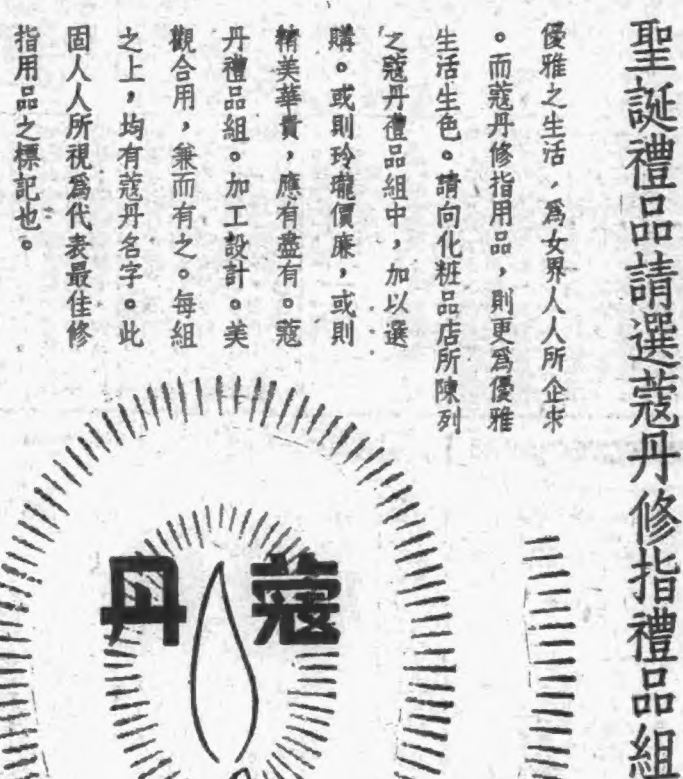 聖誕禮品請選蔻丹修指禮品組
優雅之生活，爲女界人人所企求
。而蔻丹修指用品，則更爲優雅
生活生色。請向化粧品店所陳列
之蔻丹禮品組中，加以選
購。或則玲瓏價廉，或則
精美華貴，應有盡有。蔻
丹禮品組。加工設計。美
觀合用，兼而有之。每組
之上，均有蔻丹名字。此
固人人所視爲代表最佳修
指用品之標記也。
蔻丹